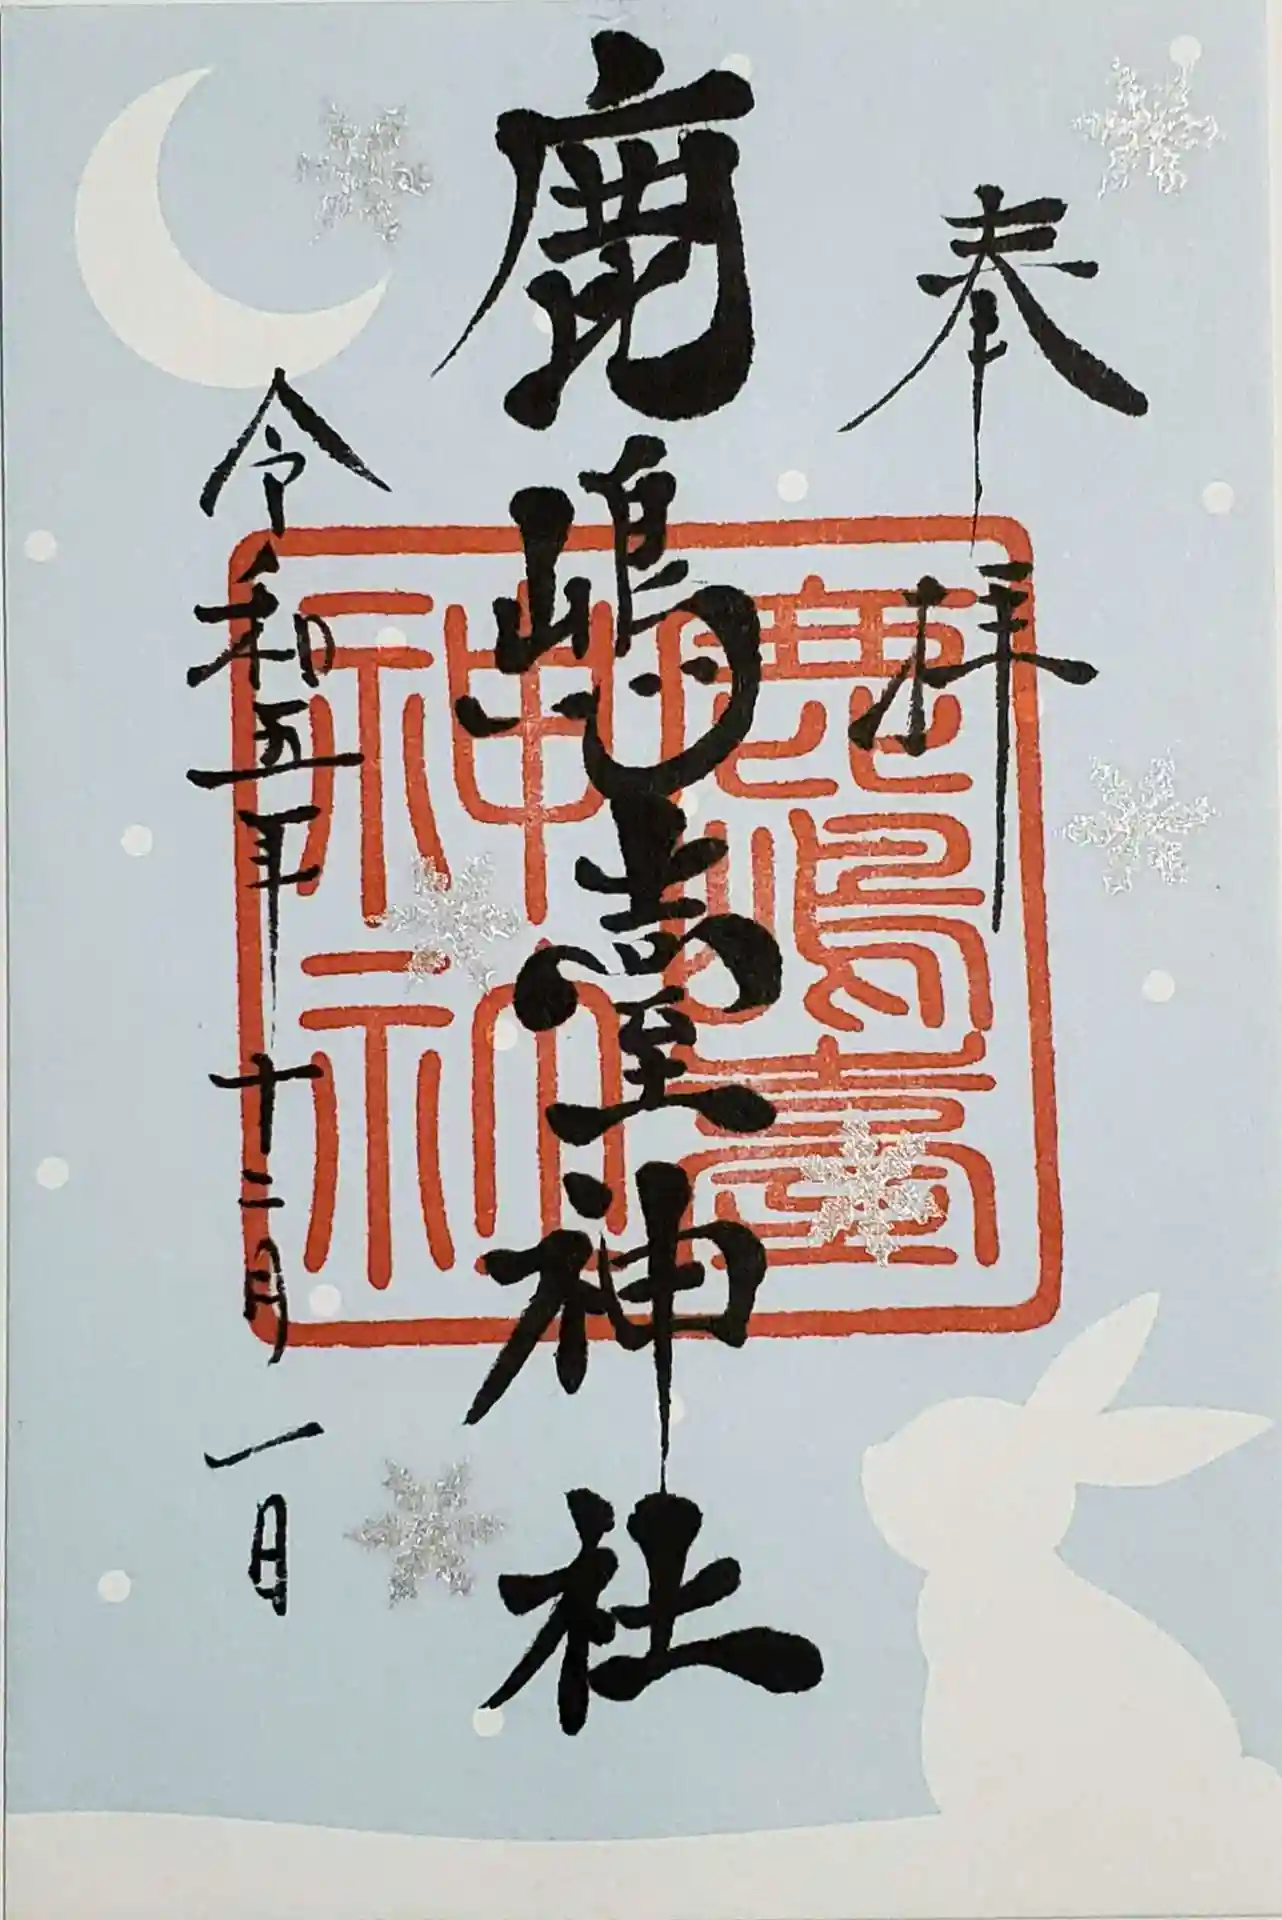 奉拝
鹿嶋臺神社
令和五年十二月一日
鹿嶋臺
神社